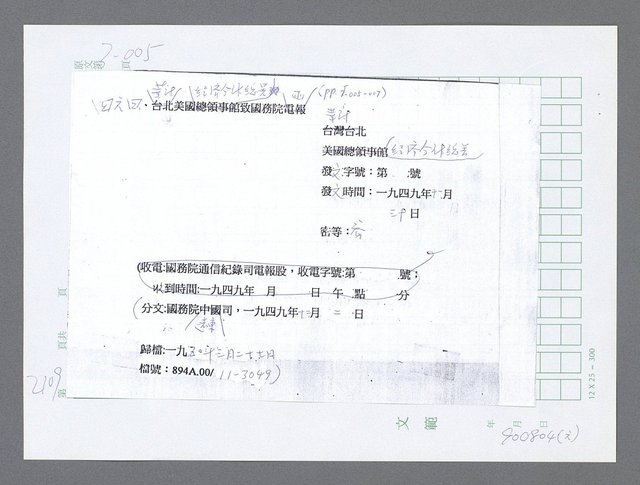 7-005
原文第 頁
(PP. 7.005-007)
四六四、台北美國總領事館致國務院電報
台灣台北
美國總領事館
發文字號：第 號
發文時間：一九四九年十一月
三十日
密等：
(收電:國務院通信紀錄司電報股，收電字號:第 號；
收到時間:一九四九年 月 日 午 點 分
(分文:國務院中國司，一九四九年十二月 二 日
歸檔:一九五〇年三月二十七日
檔號：894A.00/ 11-3049)
頁共 頁
第
文 範
年 月 日
12 X 25 = 300
900804(文)